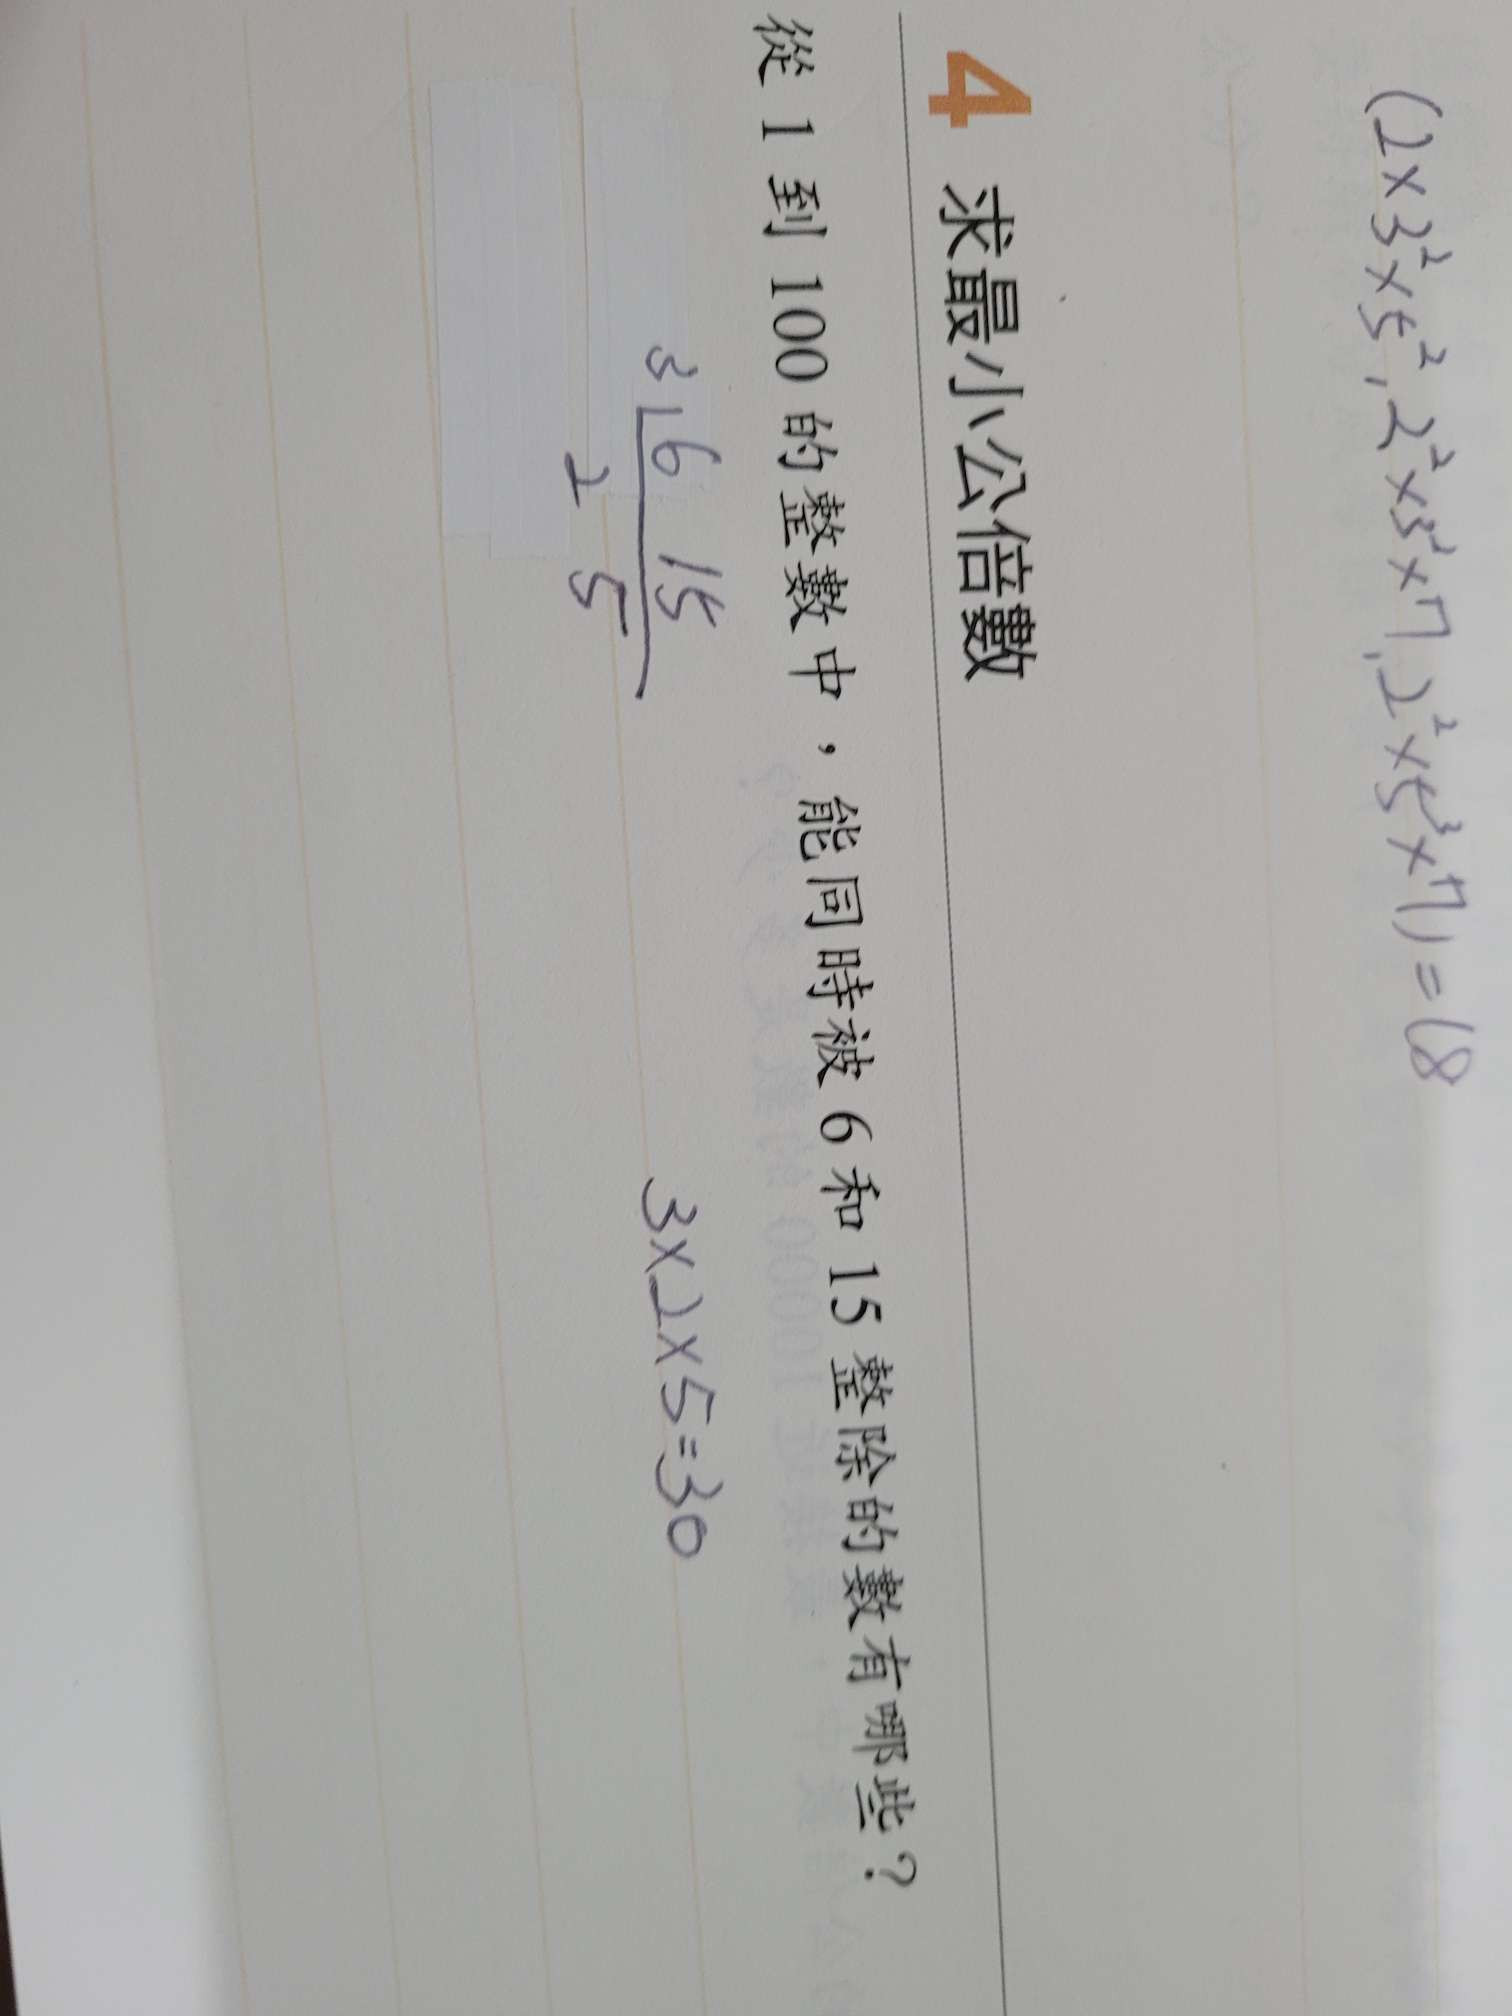 (2×3²×5², 2²×3²×7, 2²×5³×7)=18
4 求最小公倍數
從 1 到 100 的整數中，能同時被 6 和 15 整除的數有哪些？
3 6 15 3×2×5=30
2 5